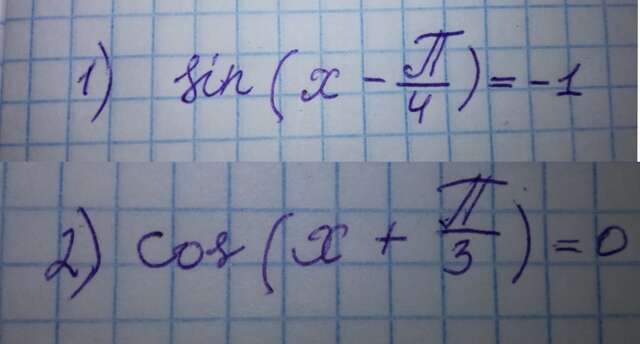 1) sin(x - π/4) = -1
2) cos(x + π/3) = 0